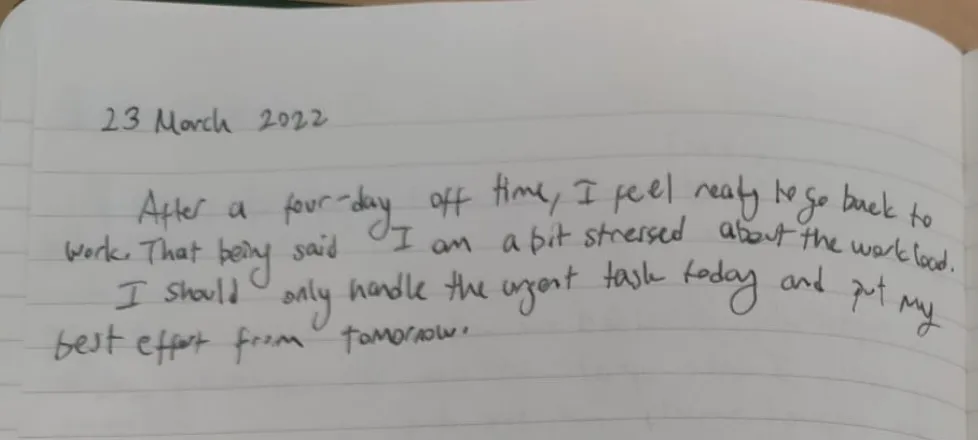 23 March 2022
After a four-day off time, I feel ready to go back to
work. That being said I am a bit stressed about the workload.
I should only handle the urgent task today and put my
best effort from tomorrow.